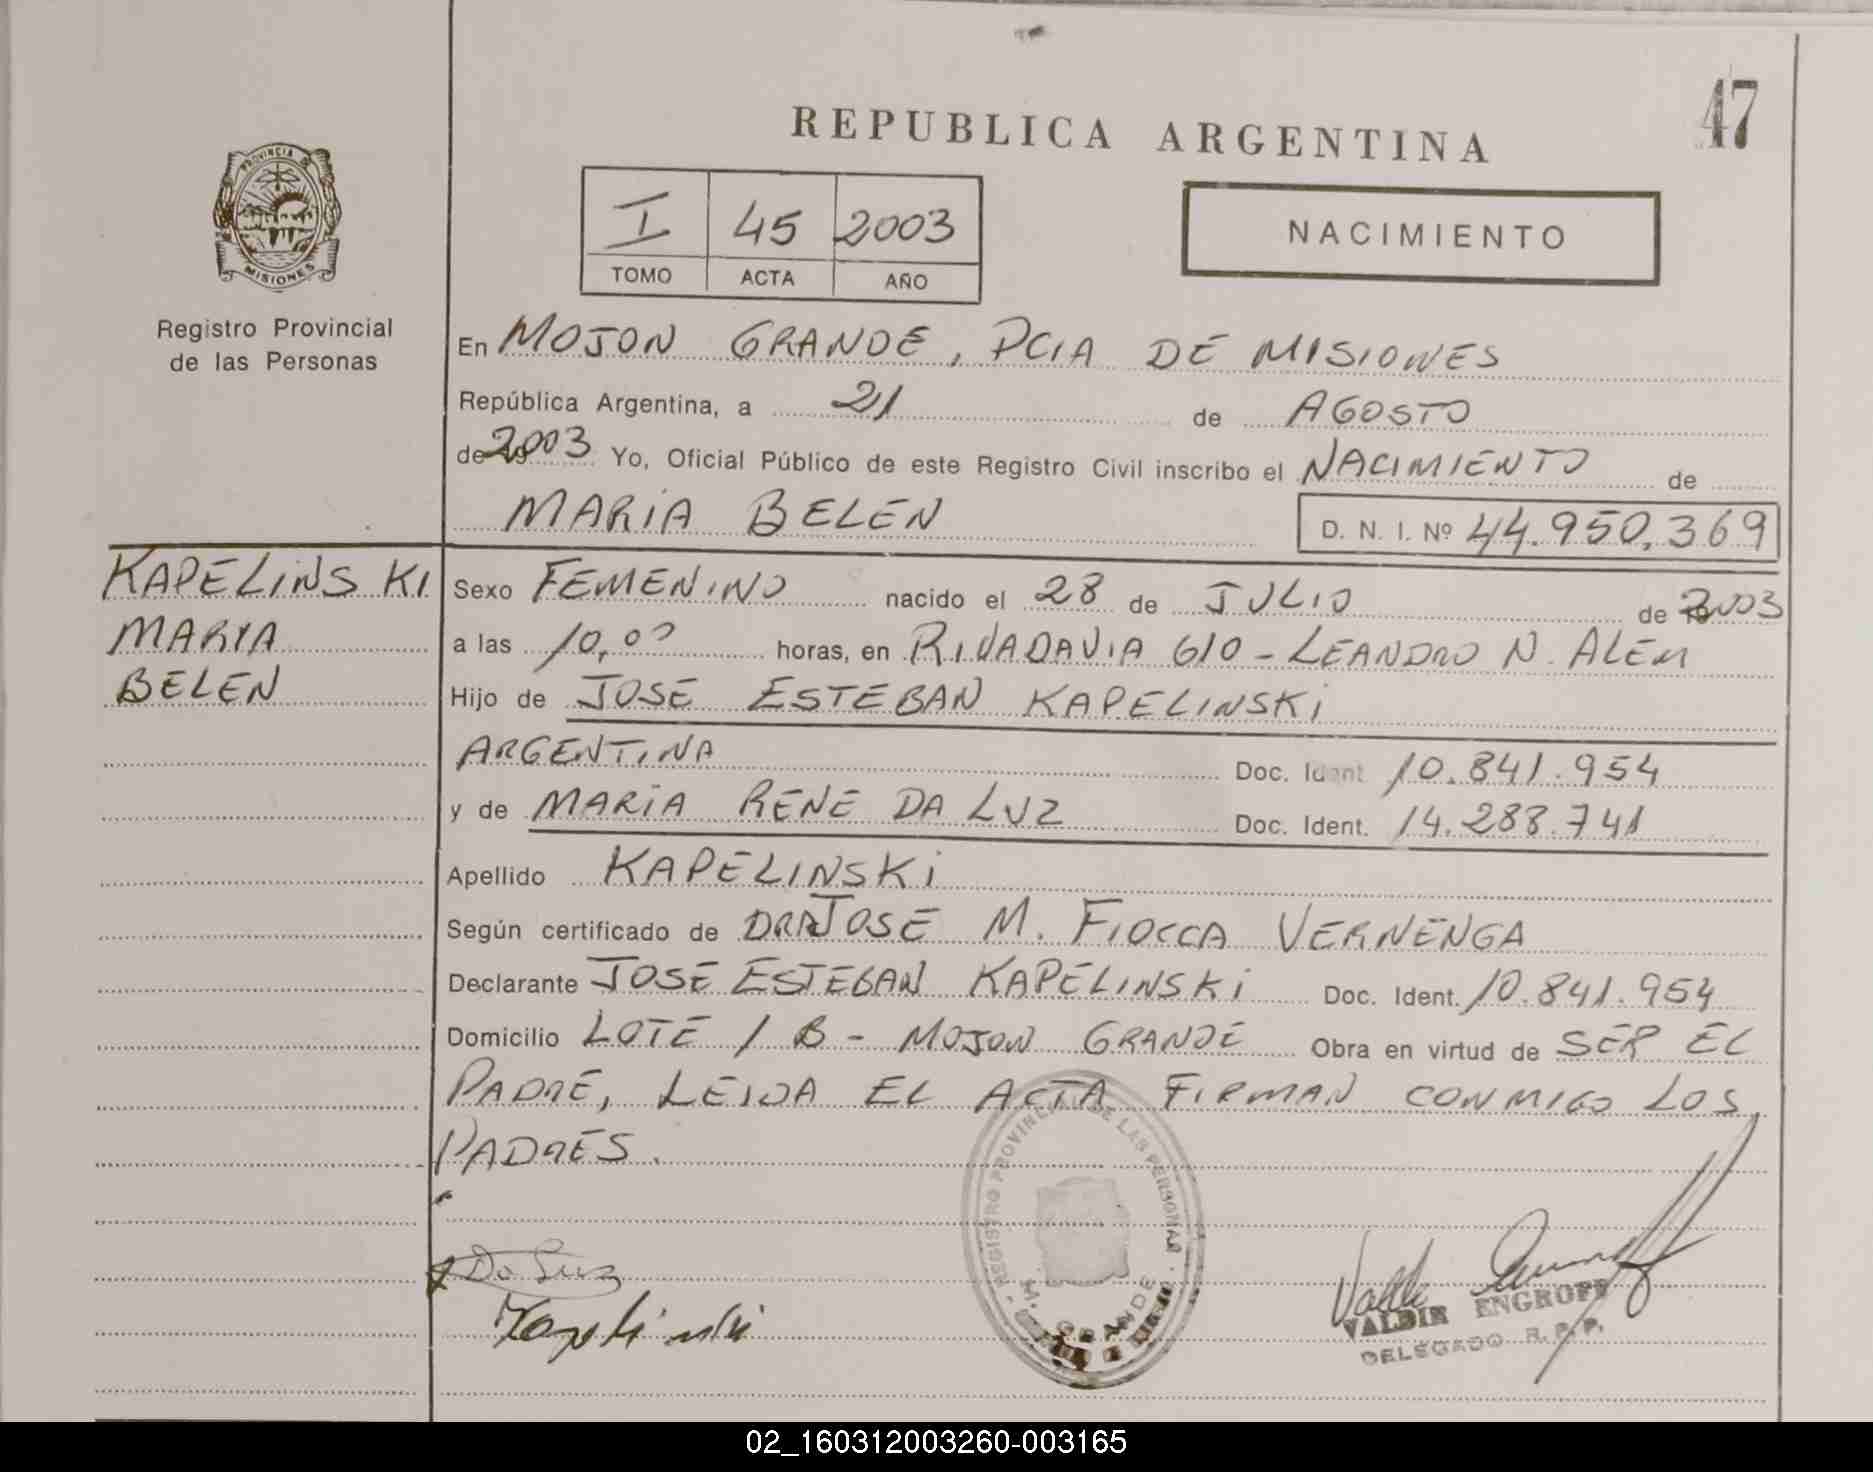 47
REPUBLICA ARGENTINA
I 45 2003
TOMO ACTA AÑO
NACIMIENTO
PROVINCIA DE
MISIONES
Registro Provincial
de las Personas
En MOJON GRANDE, PCIA DE MISIONES
República Argentina, a 21 de AGOSTO
de 2003 Yo, Oficial Público de este Registro Civil inscribo el NACIMIENTO de
MARIA BELEN D. N. I. Nº 44.950.369
KAPELINSKI
MARIA
BELEN
Sexo FEMENINO nacido el 28 de JULIO de 2003
a las 10,00 horas, en RIVADAVIA 610 - LEANDRO N. ALEM
Hijo de JOSE ESTEBAN KAPELINSKI
ARGENTINA Doc. Ident. 10.841.954
y de MARIA RENE DA LUZ Doc. Ident. 14.288.741
Apellido KAPELINSKI
Según certificado de DRA JOSE M. FIOCCA VERNENGA
Declarante JOSE ESTEBAN KAPELINSKI Doc. Ident. 10.841.954
Domicilio LOTE 1 B - MOJON GRANDE Obra en virtud de SER EL
PADRE, LEIDA EL ACTA FIRMAN CONMIGO LOS
PADRES.
REGISTRO PROVINCIAL DE LAS PERSONAS
M. GRANDE
Da Luz
Kapelinski
VALDIR ENGROFF
DELEGADO R.P.P.
02_160312003260-003165